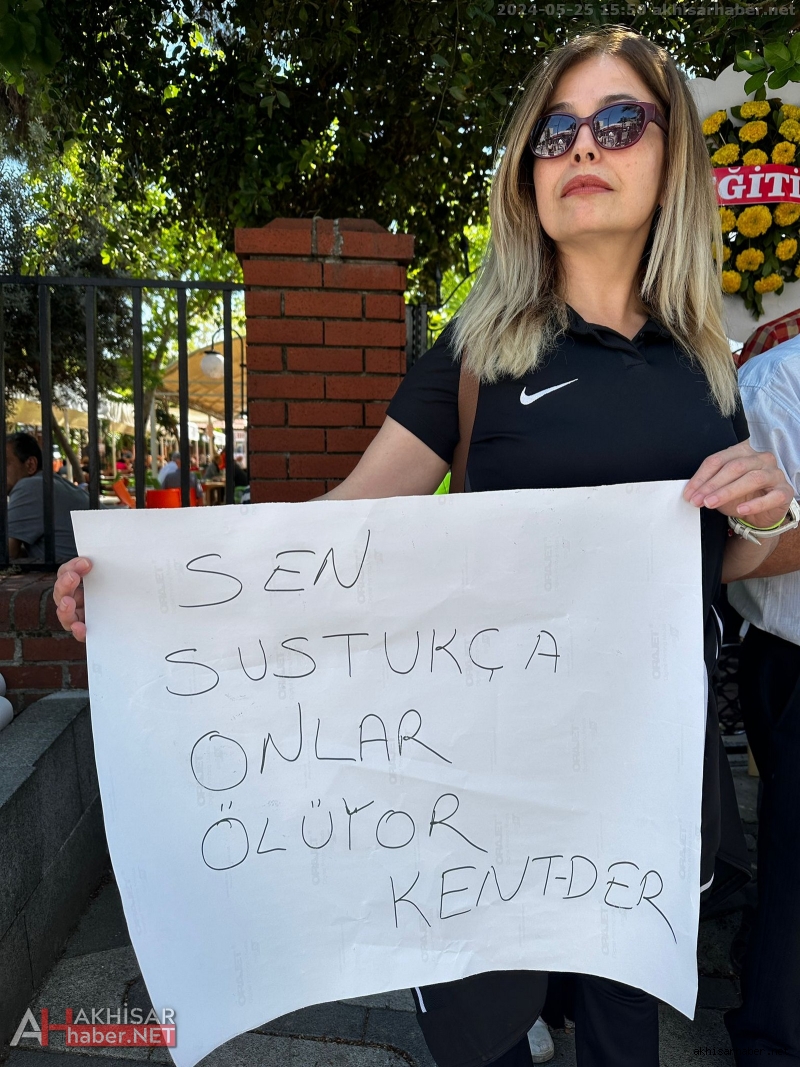 2024-05-25 15:59 akhisarhaber.net
ĞİTİ
SEN
SUSTUKÇA
ONLAR
ÖLÜYOR
KENT-DER
AKHİSAR
haber.NET